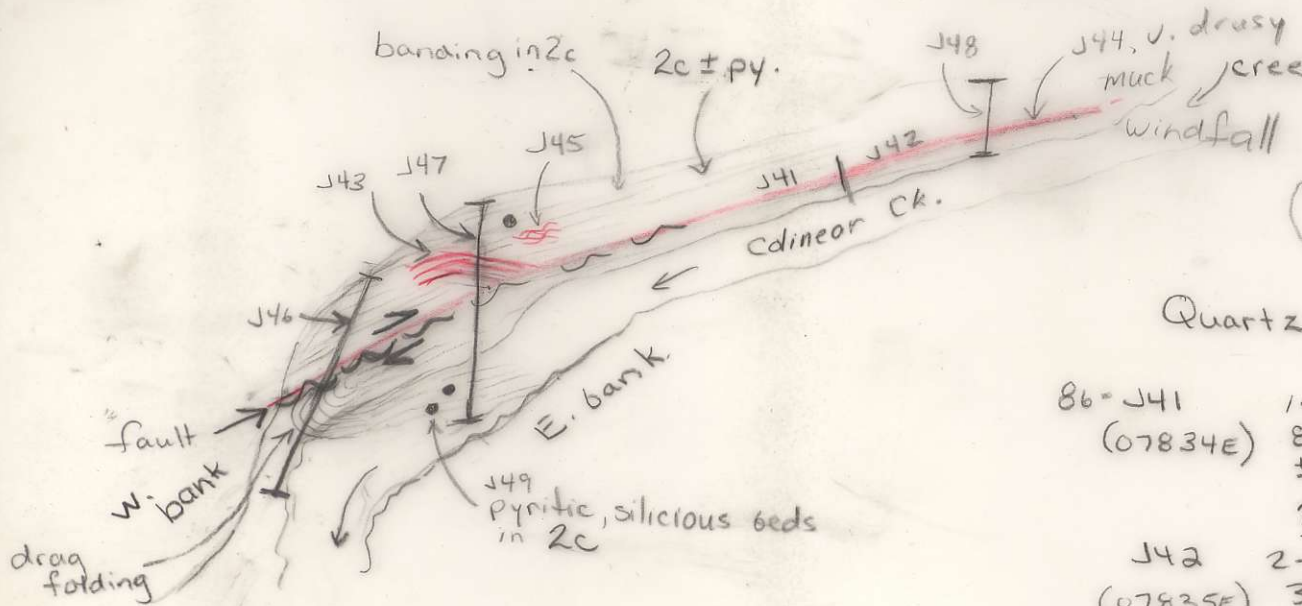 banding in 2c
2c ± py.
J48
J44, v. drusy
muck
windfall
J43
J47
J45
J41
J42
Colinear Ck.
J46
fault
W. bank
E. bank
J49
pyritic, silicious beds
in 2c
drag
folding
Quartz
86-J41
(07834E)
J42
(07835E)